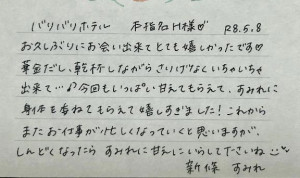 バリバリホテル 本指名H様♡ R8.5.8
お久しぶりにお会い出来てとても嬉しかったです♡
華金だし、乾杯しながらさりげなくいちゃいちゃ
出来て…♪今回もいっぱい甘えてもらえて、すみれに
身体を委ねてもらえて嬉しすぎました！これから
またお仕事が忙しくなっていくと思いますが、
しんどくなったらすみれに甘えにいらして下さいね
新條 すみれ